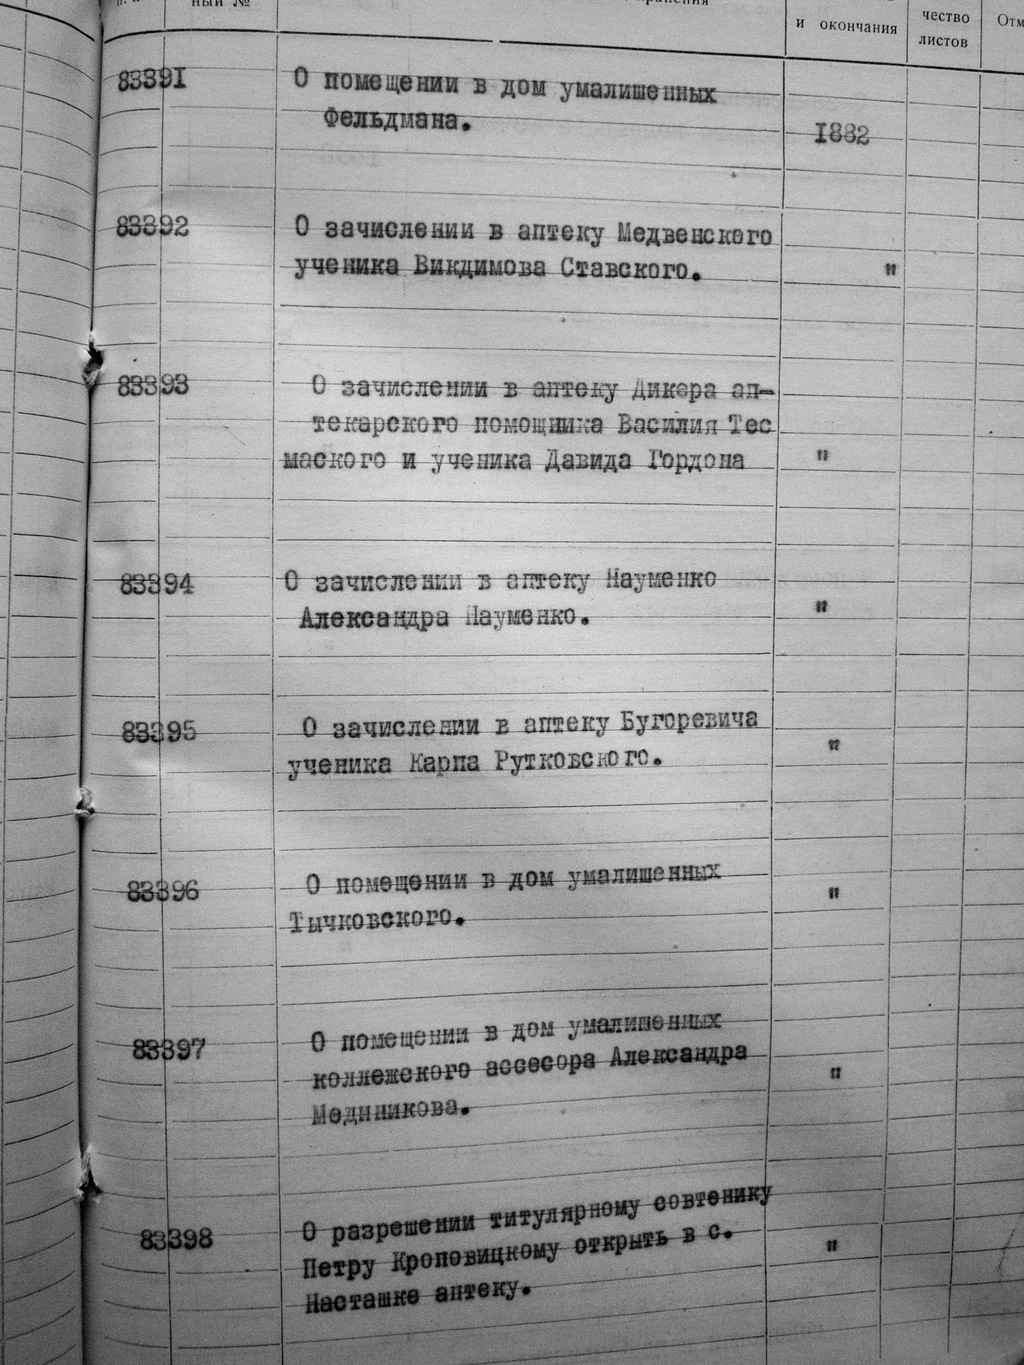 ный №
и окончания
чество
листов
Отм
83391
О помещении в дом умалишенных
Фельдмана.
1882
83392
О зачислении в аптеку Медвенского
ученика Викдимова Ставского.
"
83393
О зачислении в аптеку Дикера ап-
текарского помощника Василия Тес
маского и ученика Давида Гордона
"
83394
О зачислении в аптеку Науменко
Александра Науменко.
"
83395
О зачислении в аптеку Бугоревича
ученика Карпа Рутковского.
"
83396
О помещении в дом умалишенных
Тычковского.
"
83397
О помещении в дом умалишенных
коллежского ассесора Александра
Мединикова.
"
83398
О разрешении титулярному совтенику
Петру Кроповицкому открыть в с.
Насташке аптеку.
"